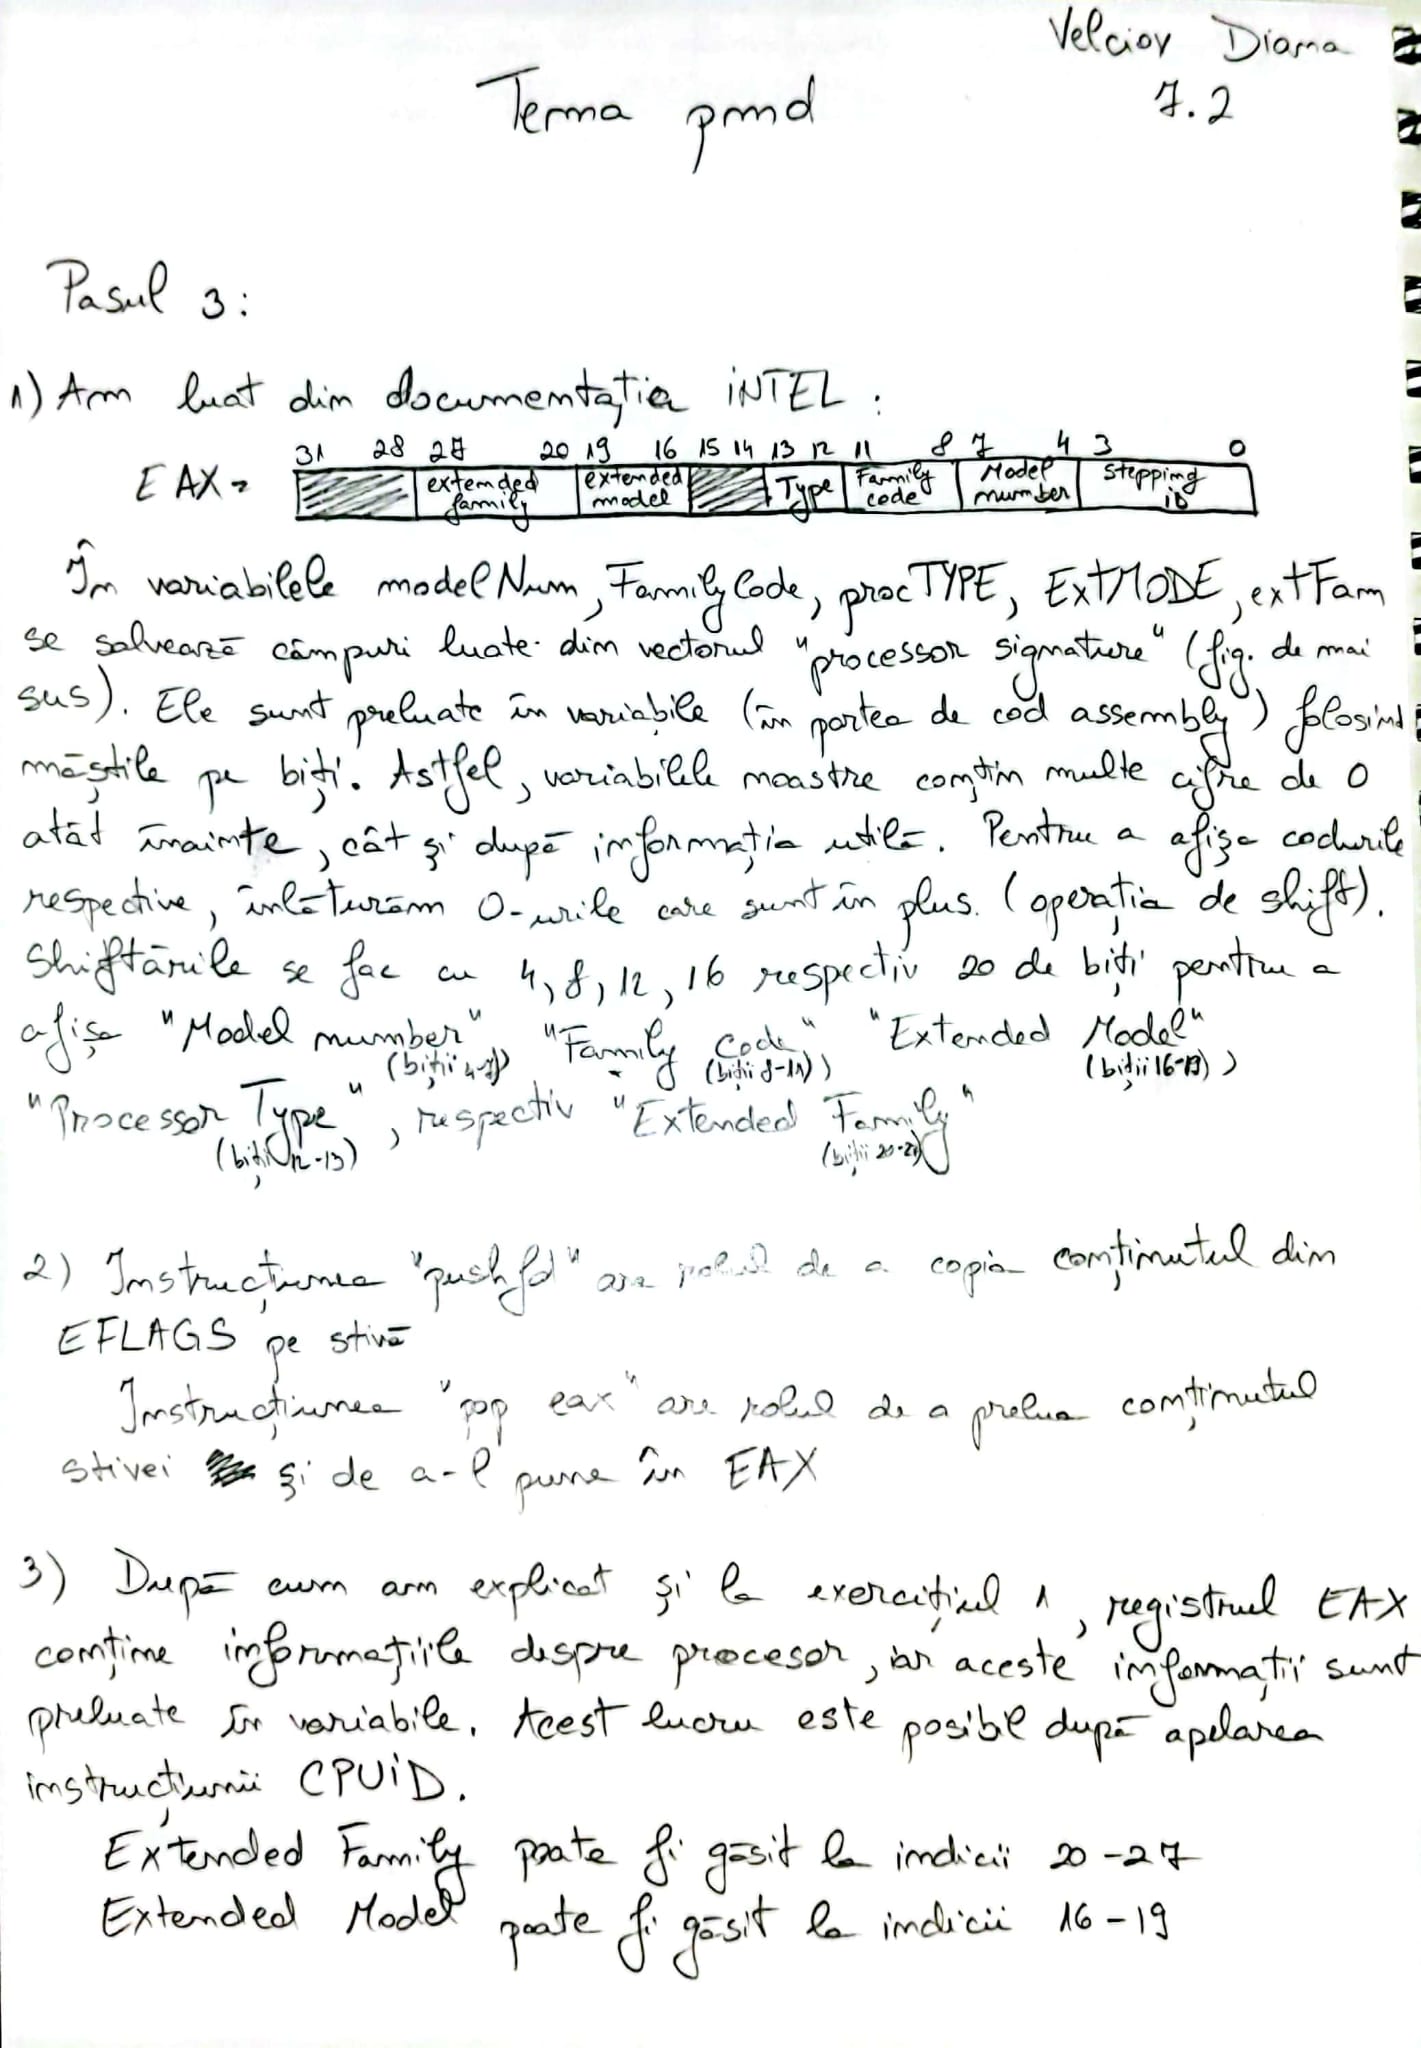 Velciov Diana
7.2
Tema pmd
Pasul 3:
1) Am luat din documentația INTEL :
31 28 27 20 19 16 15 14 13 12 11 8 7 4 3 0
EAX = extended family extended model Type Family code Model number Stepping ID
În variabilele modelNum, FamilyCode, procTYPE, ExtMODE, extFam
se salvează câmpuri luate din vectorul "processor signature" (fig. de mai
sus). Ele sunt preluate în variabile (în partea de cod assembly) folosind
măștile pe biți. Astfel, variabilele noastre conțin multe cifre de 0
atât înainte, cât și după informația utilă. Pentru a afișa codurile
respective, înlăturăm 0-urile care sunt în plus. (operația de shift).
Shiftările se fac cu 4, 8, 12, 16 respectiv 20 de biți pentru a
afișa "Model number" (biții 4-7) "Family Code" (biții 8-11), "Extended Model" (biții 16-19),
"Processor Type" (biții 12-13), respectiv "Extended Family" (biții 20-27)
2) Instrucțiunea "pushfd" are rolul de a copia conținutul din
EFLAGS pe stivă
Instrucțiunea "pop eax" are rolul de a prelua conținutul
stivei și de a-l pune în EAX
3) După cum am explicat și la exercițiul 1, registrul EAX
conține informațiile despre procesor, iar aceste informații sunt
preluate în variabile. Acest lucru este posibil după apelarea
instrucțiunii CPUID.
Extended Family poate fi găsit la indicii 20-27
Extended Model poate fi găsit la indicii 16-19